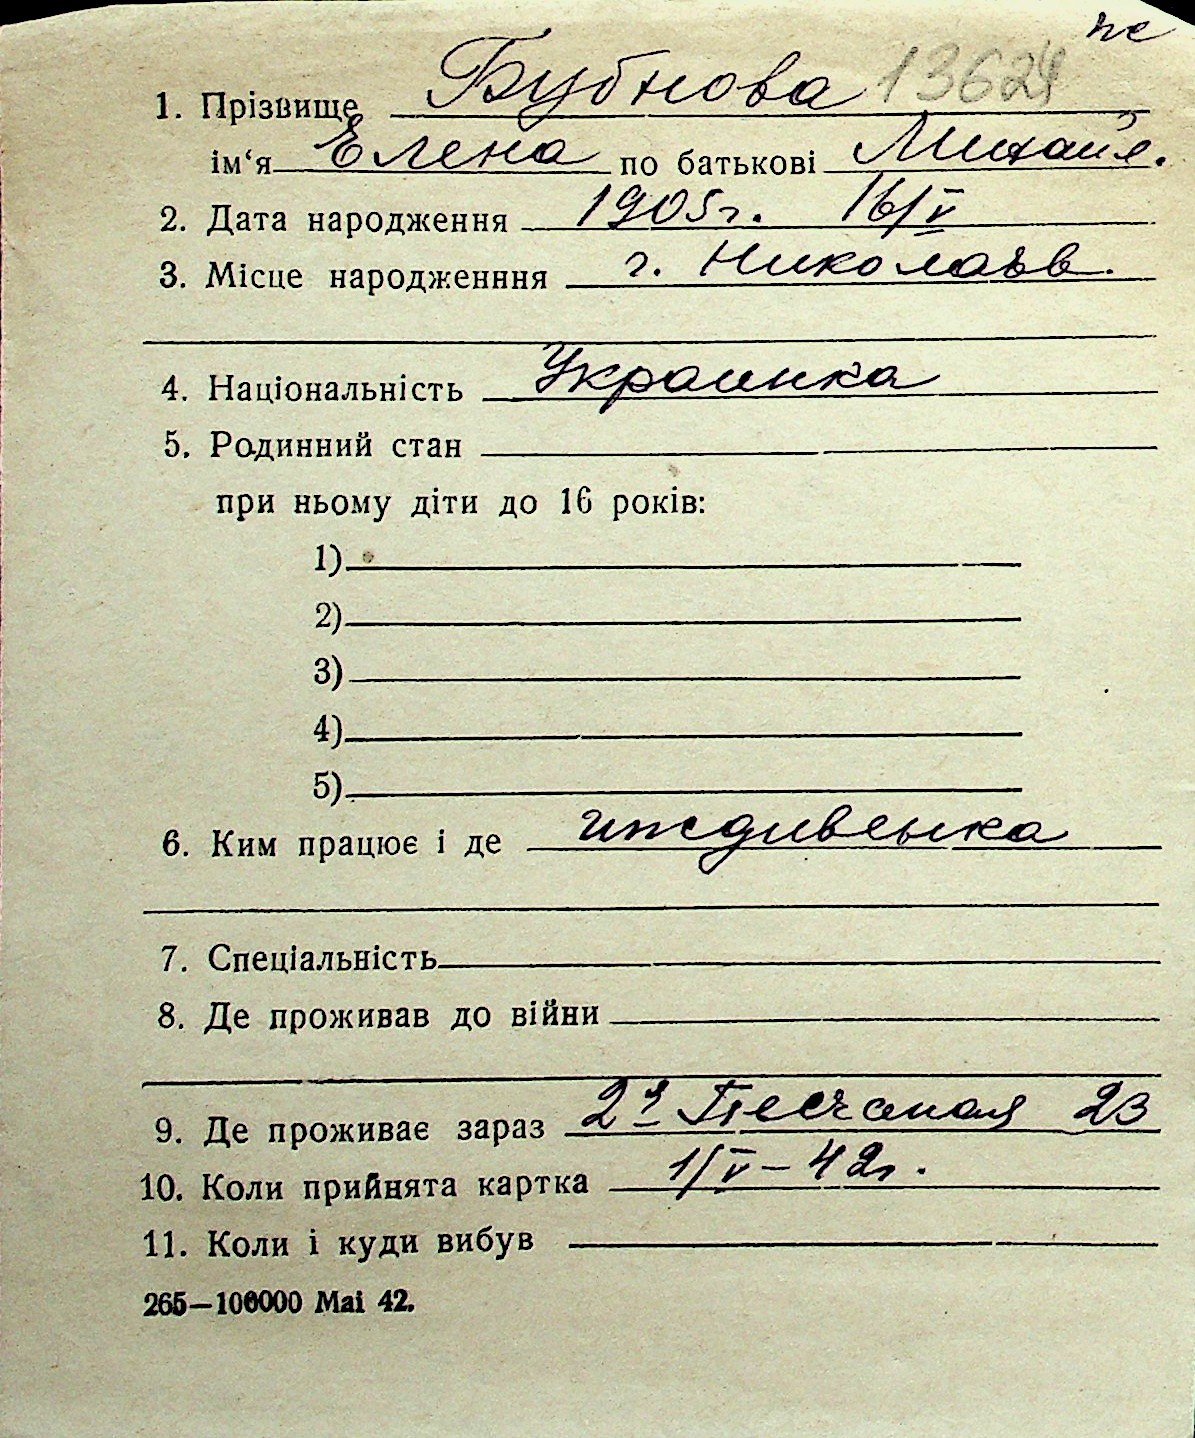 1. Прізвище Бубнова
ім‘я Елена по батькові Михайл.
2. Дата народження 1905г. 16/V
3. Місце народженння г. Николаев.
4. Національність Украинка
5. Родинний стан
при ньому діти до 16 років:
1)
2)
3)
4)
5)
6. Ким працює і де иждивенка
7. Спеціальність
8. Де проживав до війни
9. Де проживає зараз 2я Песчаная 23
10. Коли прийнята картка 1/V–42г.
11. Коли і куди вибув
265—100000 Mai 42.